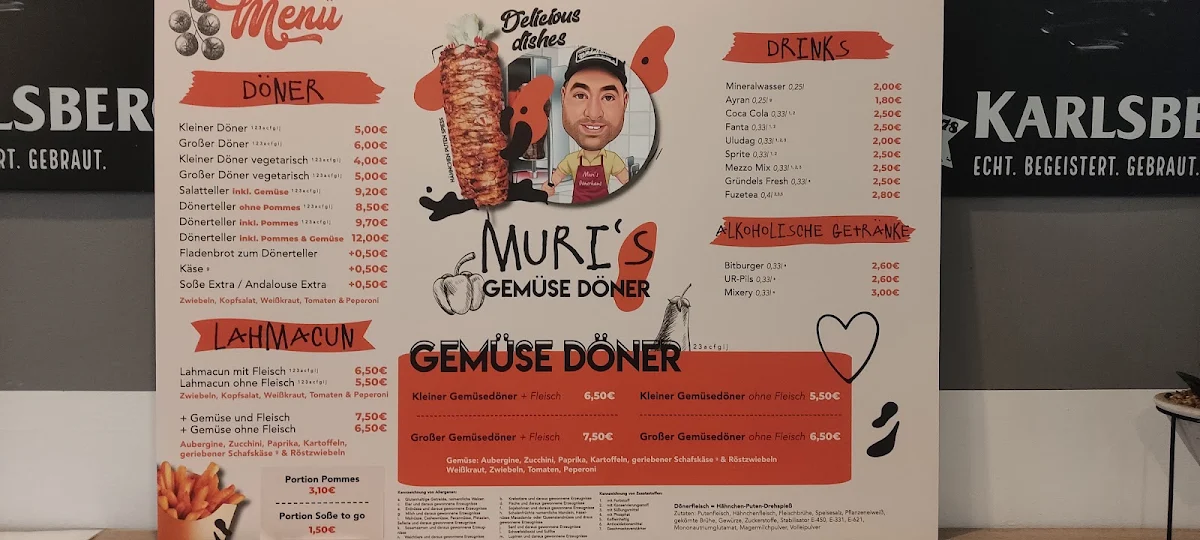 Menü
DÖNER
Kleiner Döner 5,00€
Großer Döner 6,00€
Kleiner Döner vegetarisch 4,00€
Großer Döner vegetarisch 5,00€
Salatteller inkl. Gemüse 9,20€
Dönerteller ohne Pommes 8,50€
Dönerteller inkl. Pommes 9,70€
Dönerteller inkl. Pommes & Gemüse 12,00€
Fladenbrot zum Dönerteller +0,50€
Käse +0,50€
Soße Extra / Andalouse Extra +0,50€
Zwiebeln, Kopfsalat, Weißkraut, Tomaten & Peperoni
LAHMACUN
Lahmacun mit Fleisch 6,50€
Lahmacun ohne Fleisch 5,50€
Zwiebeln, Kopfsalat, Weißkraut, Tomaten & Peperoni
+ Gemüse und Fleisch 7,50€
+ Gemüse ohne Fleisch 6,50€
Aubergine, Zucchini, Paprika, Kartoffeln,
geriebener Schafskäse & Röstzwiebeln
Portion Pommes
3,10€
Portion Soße to go
1,50€
Delicious
dishes
HÄHNCHEN PUTEN SPIESS
Muri's
MURI'S
GEMÜSE DÖNER
GEMÜSE DÖNER
Kleiner Gemüsedöner + Fleisch 6,50€
Kleiner Gemüsedöner ohne Fleisch 5,50€
Großer Gemüsedöner + Fleisch 7,50€
Großer Gemüsedöner ohne Fleisch 6,50€
Gemüse: Aubergine, Zucchini, Paprika, Kartoffeln, geriebener Schafskäse & Röstzwiebeln
Weißkraut, Zwiebeln, Tomaten, Peperoni
DRINKS
Mineralwasser 0,25l 2,00€
Ayran 0,25l 1,80€
Coca Cola 0,33l 2,50€
Fanta 0,33l 2,50€
Uludag 0,33l 2,00€
Sprite 0,33l 2,50€
Mezzo Mix 0,33l 2,50€
Gründels Fresh 0,33l 2,50€
Fuzetea 0,4l 2,80€
ALKOHOLISCHE GETRÄNKE
Bitburger 0,33l 2,60€
UR-Pils 0,33l 2,60€
Mixery 0,33l 3,00€
Kennzeichnung von Allergenen:
Kennzeichnung von Zusatzstoffen:
Dönerfleisch = Hähnchen-Puten-Drehspieß
Zutaten: Putenfleisch, Hähnchenfleisch, Fleischbrühe, Speisesalz, Pflanzeneiweiß,
gekörnte Brühe, Gewürze, Zuckerstoffe, Stabilisator E-450, E-331, E-621,
Mononautriumglutamat, Magermilchpulver, Volleipulver
LSBER
RT. GEBRAUT.
KARLSBE
ECHT. BEGEISTERT. GEBRAUT.